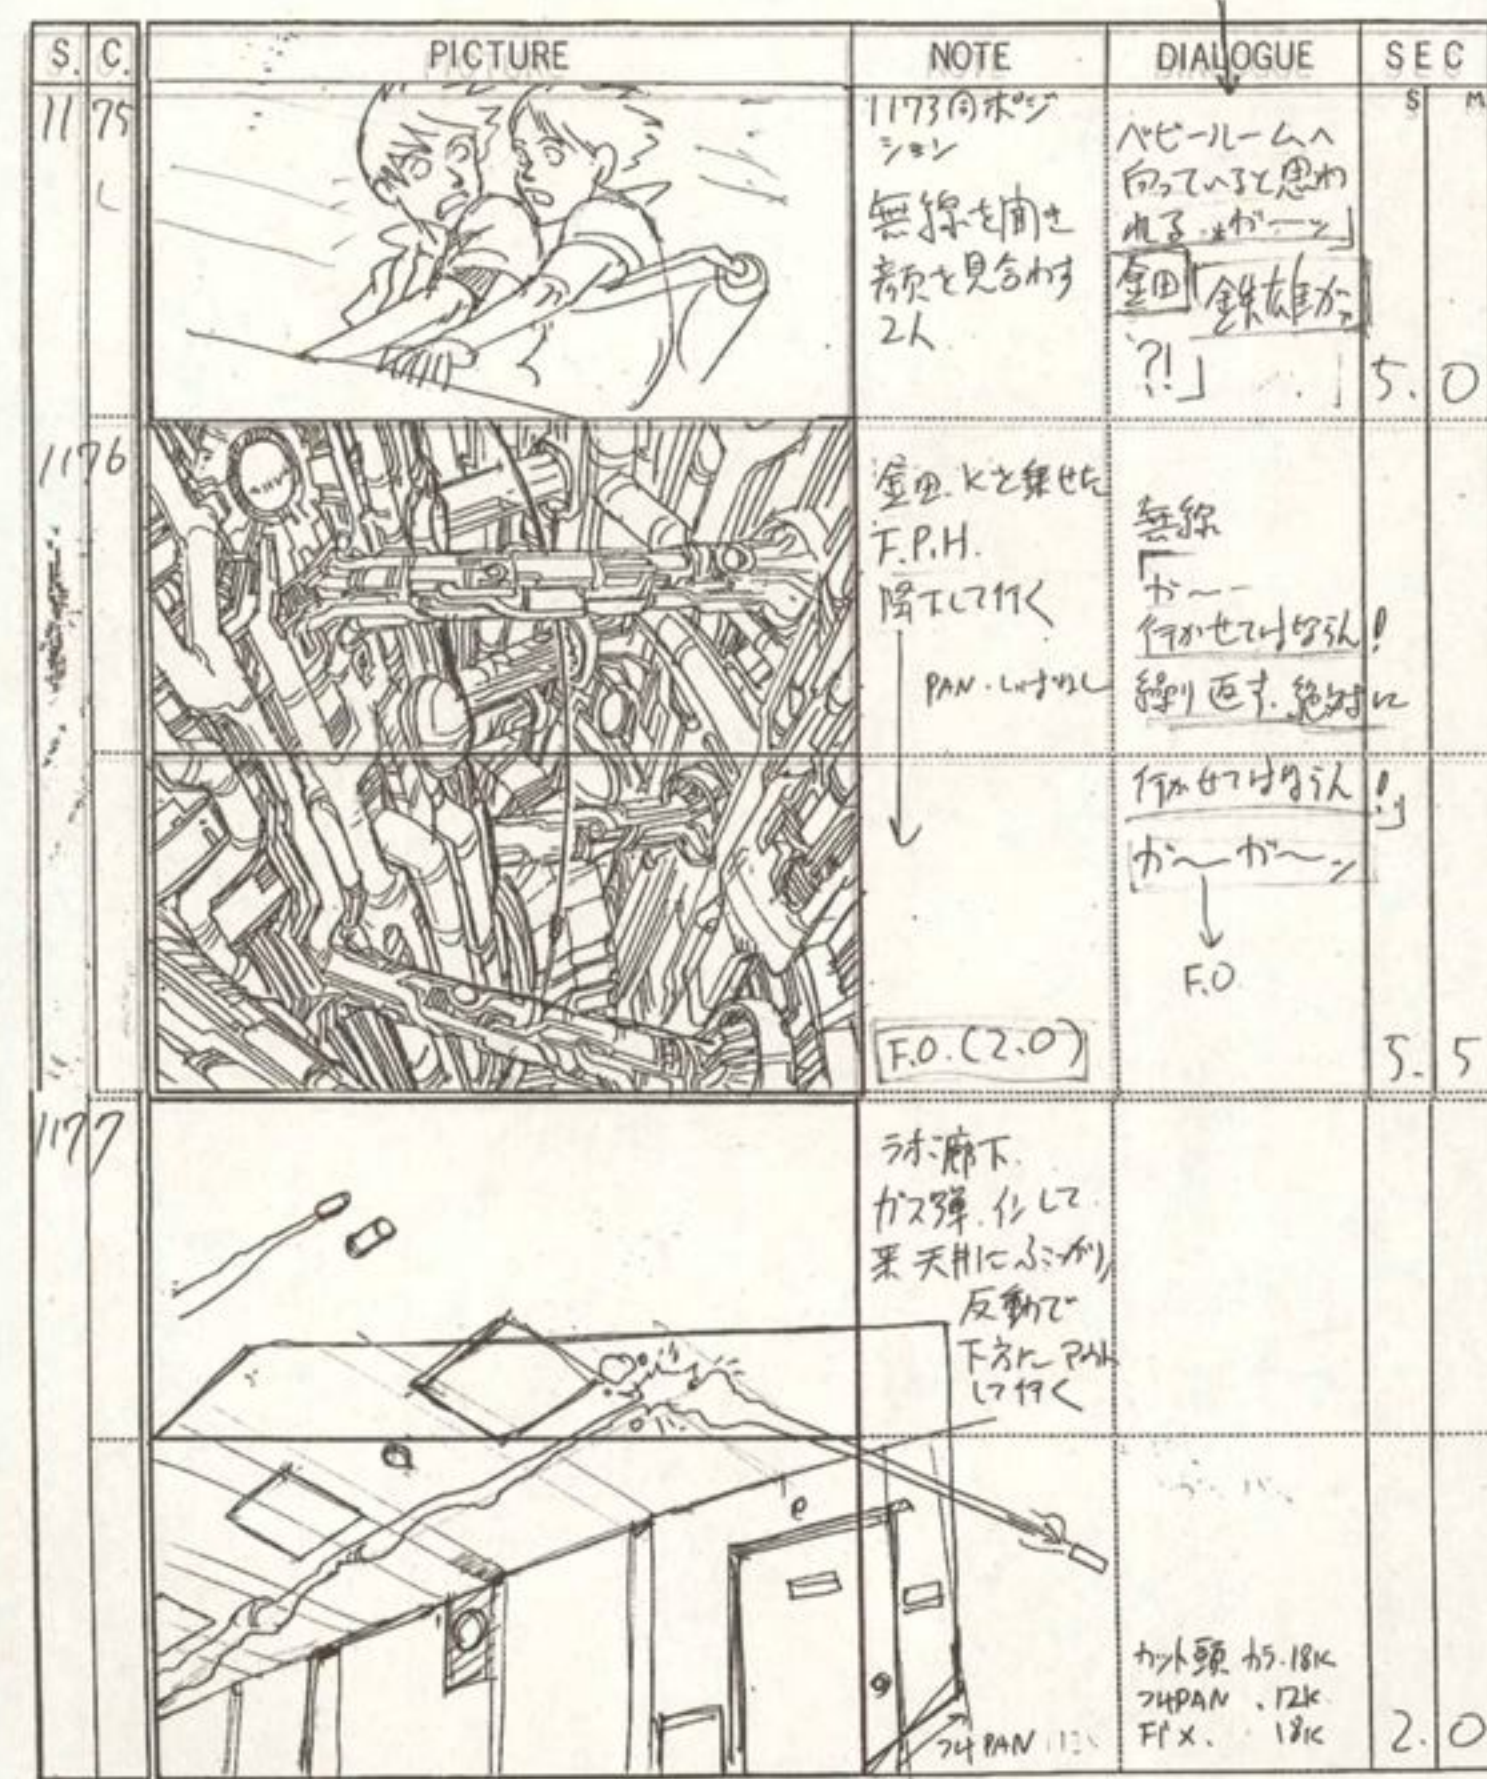 S. C. PICTURE NOTE DIALOGUE SEC
S M
1175
1173同ポジ
ション
無線を聞き
顔を見合わす
2人
ベビールームへ
向っていると思わ
れる
が―ッ」
金田「鉄雄が
?!」
5.0
1176
金田、Kを乗せた
F.P.H.
降下して行く
PAN.
無線
「
ガ〜ー
行かせてはならん!
繰り返す、絶対に
行かせてはならん!」
ガ〜ガ〜ッ
F.O
F.O.(2.0)
5.5
1177
ラボ廊下.
ガス弾.インして
来 天井にぶつかり
反動で
下方に アウト
して行く
フォPAN
カット頭から.18K
フォPAN .12K
FiX. 18K
2.0